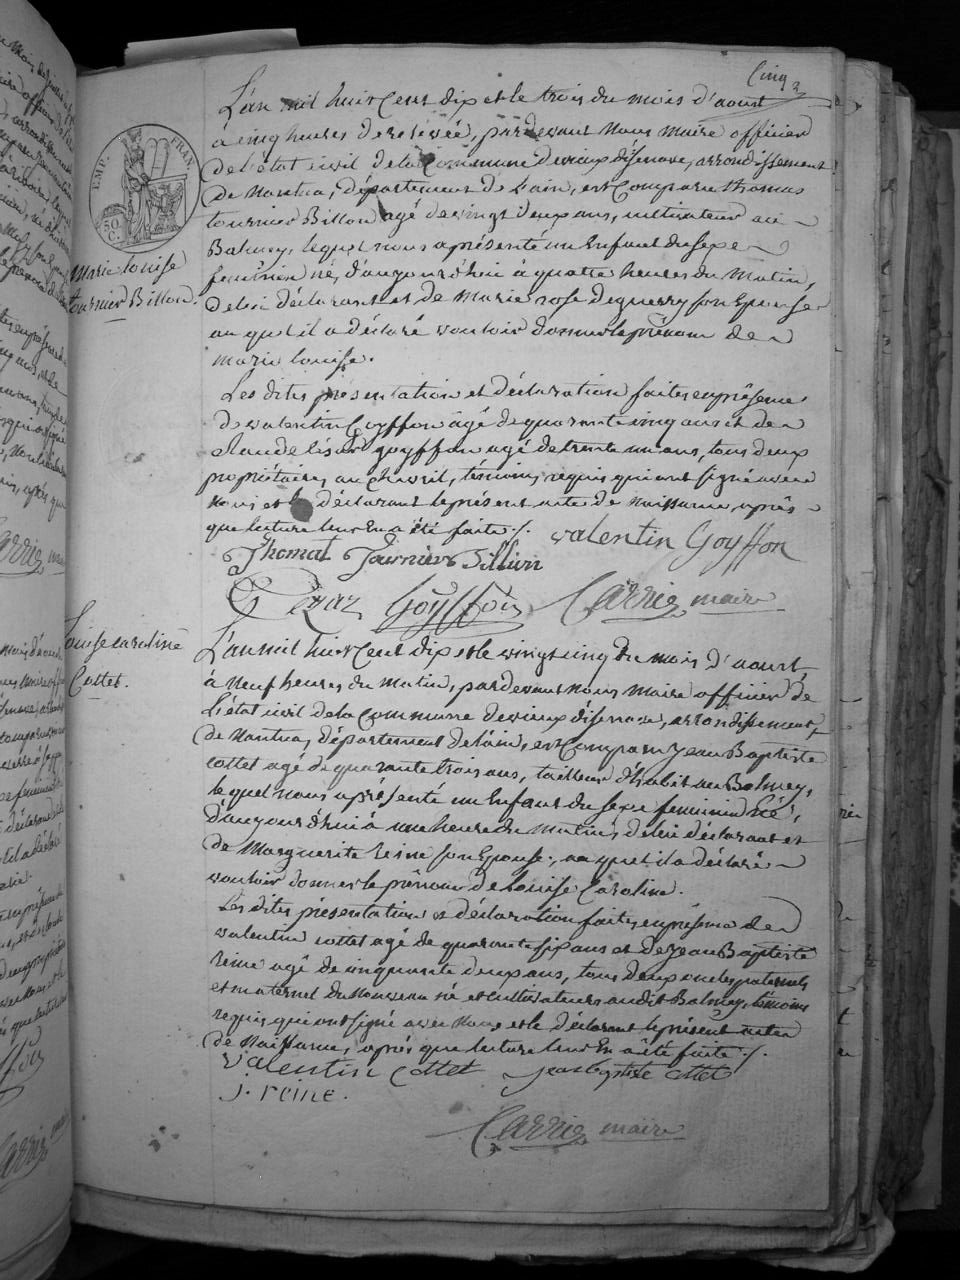 Cinq
L'an mil huit Cent dix et le trois du mois d'aoust
à cinq heures de relevée, pardevant Nous maire officier
de l'état civil de la Commune de vieux d'isenave, arrondissement
de Nantua, département de l'ain, est Comparu thomas
tournier Billon agé de vingt deux ans, cultivateur au
Balmey, lequel nous a présenté un Enfant du sexe
feminin né, d'aujourd'hui à quatre heures du Matin,
De lui déclarant et de Marie rose deguerry son Epouse
au quel il a déclaré vouloir donner le prénom de
marie louise.
EMP. FRAN.
50 C.
Marie louise
tournier Billon.
Les dites présentation et déclaration faites en présence
de valentin Goyffon agé de quarante cinq ans et de
Claude césar goyffon agé de trente un ans, tous deux
propriétaires au Chevril, témoins requis qui ont signé avec
Nous et le déclarant le présent acte de Naissance, après
que lecture leur En a été faite ./. valentin Goyffon
Thomat Tournier Billion
Cezar Goyffon Carrier maire
Louise caroline
Cottet.
L'an mil huit Cent dix et le vingt cinq du mois d'aoust
à Neuf heures du Matin, pardevant nous Maire officier de
L'état civil de la Commune de vieux d'isenave, arrondissement
de Nantua, département de l'ain, est Comparu Jean Baptiste
cottet agé de quarante trois ans, tailleur d'habit au Balmey,
le quel nous a présenté un Enfant du sexe feminin né,
d'aujourd'hui à une heure du Matin, de lui déclarant et
de Marguerite reine son Epouse, au quel il a déclaré
vouloir donner le prénom de Louise Caroline.
Les dites présentation et déclaration faites en présence de
valentin cottet agé de quarante six ans et de Jean Baptiste
reine agé de cinquante deux ans, tous deux oncles paternels
et maternel du Nouveau né et cultivateurs audit Balmey, témoins
requis qui ont signé avec Nous et le déclarant le présent acte
de Naissance, après que lecture leur En a été faite ./.
valentin Cottet Jean baptiste Cottet
J. reine.
Carrier maire